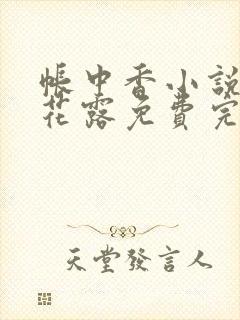 帳中香小說
花露免費完
天堂發言人